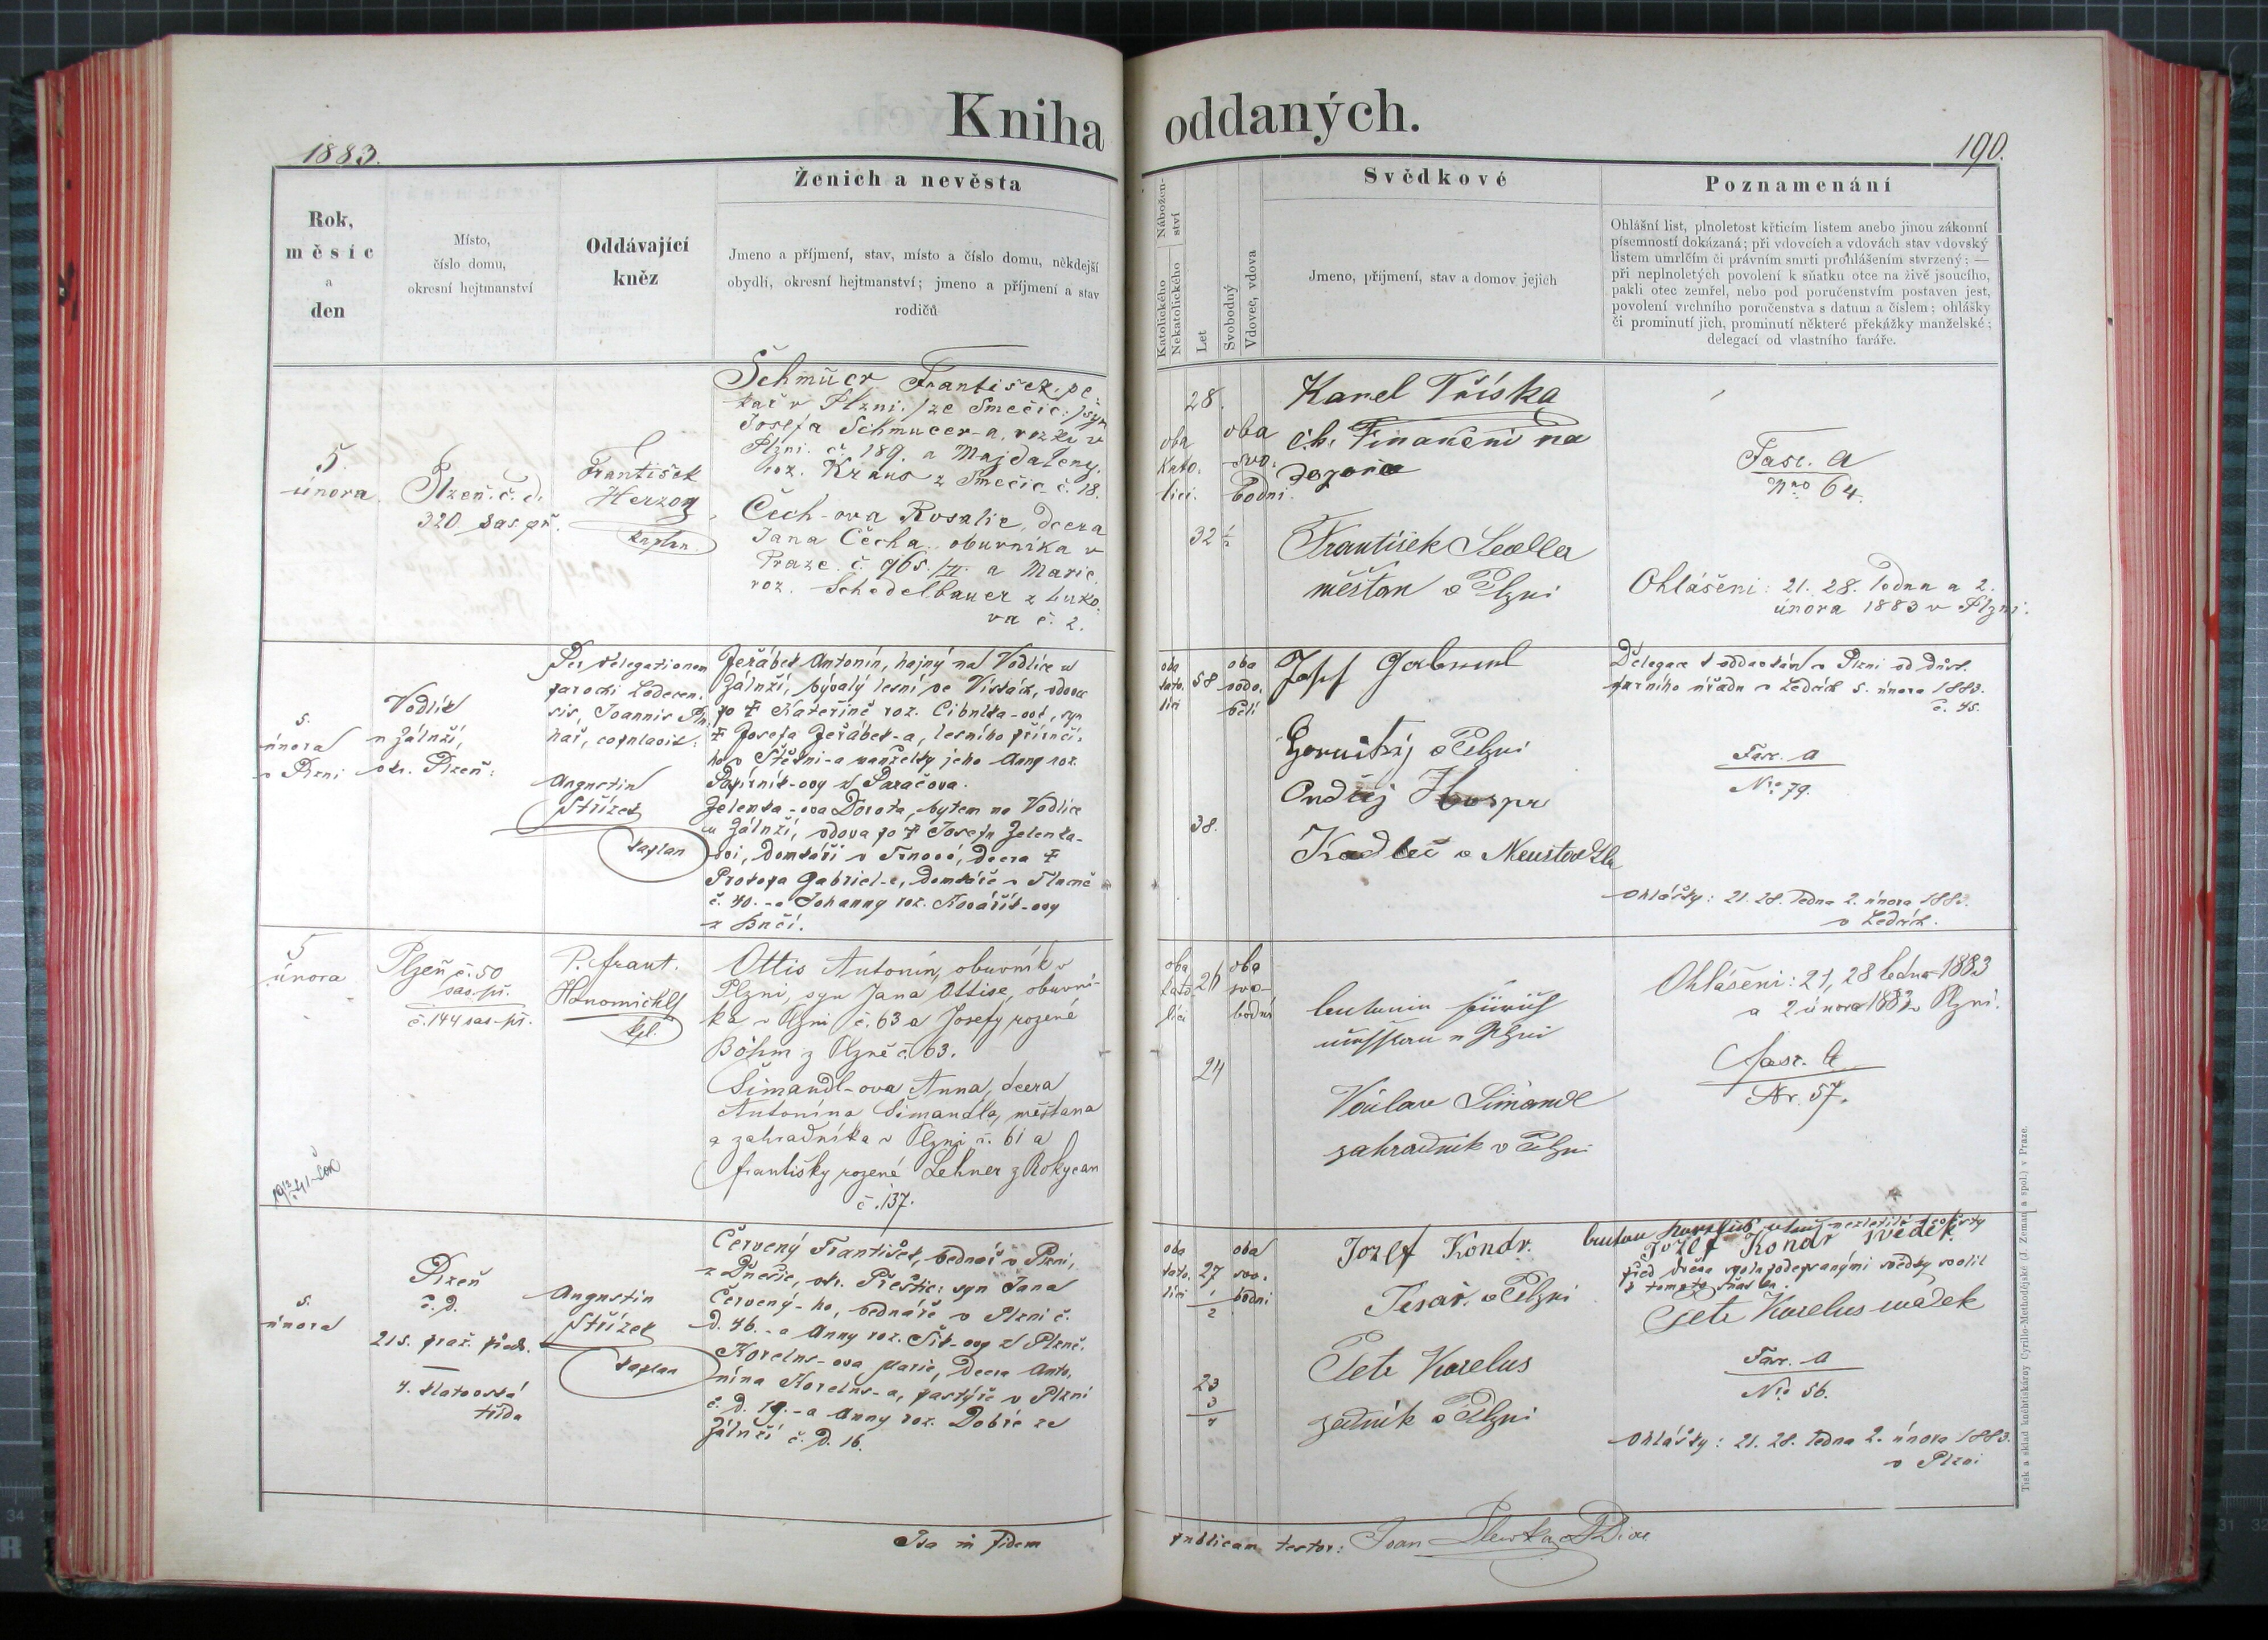 Kniha oddaných.
1883.
190.
Rok,
měsíc
a
den
Místo,
číslo domu,
okresní hejtmanství
Oddávající
kněz
Ženich a nevěsta
Jmeno a příjmení, stav, místo a číslo domu, někdejší
obydlí, okresní hejtmanství; jmeno a příjmení a stav
rodičů
Nábožen-
ství
Katolického
Nekatolického
Let
Svobodný
Vdovec, vdova
Svědkové
Jmeno, příjmení, stav a domov jejich
Poznamenání
Ohlášní list, plnoletost křticím listem anebo jinou zákonní
písemností dokázaná; při vdovcích a vdovách stav vdovský
listem umrlčím či právním smrti prohlášením stvrzený; —
při neplnoletých povolení k sňatku otce na živě jsoucího,
pakli otec zemřel, nebo pod poručenstvím postaven jest,
povolení vrchního poručenstva s datum a číslem; ohlášky
či prominutí jich, prominutí některé překážky manželské;
delegací od vlastního faráře.
5.
února
Plzeň č. d.
320 sas. př.
František
Herzog
kaplan
Schmucr František, pe-
kař v Plzni, /ze Smečic:/ syn
Josefa Schmucer-a,
Plzni č. 189. a Majdaleny,
roz. Kraus z Smečic č. 18.
Čech-ova Rosalie, dcera
Jana Čecha, obuvníka v
Praze č. 965./II. a Marie,
roz. Schedelbauer z Luko-
va č. 2.
28.
oba
kato-
líci.
oba
svo-
bodni.
32 1/2
Karel Tříska
c.k. Finanční
František
měšťan v Plzni
Fasc. A
Nro 64.
Ohlášení: 21. 28. ledna a 2.
února 1883 v Plzni.
5.
února
v Plzni
Vodlík
u Zálnží,
okr. Plzeň:
Per delegationem
parochi Ledecen-
sis, Joannis
copulavit:
Augustin
Střízek
kaplan
Jeřábek Antonín, hajný na Vodlíce u
Zálnží, bývalý lesní ve Vískách, vdovec
po ✝ Kateřině roz. Cibulka-ové, syn
✝ Josefa Jeřábek-a, lesního příručí-
ho v Štěhni-a manželky jeho Anny roz.
Papírník-ovy z Paračova.
Zelenka-ova Dorota, bytem na Vodlíce
u Zálnží, vdova po ✝ Josefu Zelenka-
ovi, domkáři v Trnové, dcera ✝
Prokopa Gabriel-e, domkáře v
č. 40. - a Johanny roz. Kovářík-ovy
z
oba
kato-
líci
58
oba
vdo-
vělí
38.
Josef Gabriel
v Plzni
Ondřej
Kadleč v
Delegace k oddavkám v Plzni od důst.
farního úřadu v Ledcích 5. února 1883.
č. 45.
Fasc. A
Nro 79.
Ohlášky: 21. 28. ledna 2. února 1883.
v Ledcích.
5
února
Plzeň č. 50
sas. př.
č. 144 sas. př.
P. Frant.
Hanomichl
kpl.
Ottis Antonín, obuvník v
Plzni, syn Jana Ottise, obuvní-
ka v Plzni č. 63 a Josefy rozené
Böhm z Plzně č. 63.
Šimandl-ova Anna, dcera
Antonína Šimandla, měšťana
a zahradníka v Plzni č. 61 a
Františky rozené Lehner z Rokycan
č. 137.
oba
kato-
líci
26
oba
svo-
bodni
24
v Plzni
Václav Šimandl
zahradník v Plzni
Ohlášení: 21, 28 ledna 1883
a 2 února 1883 v Plzni.
Fasc. A
Nr. 57.
5.
února
Plzeň
č. d.
215. praž. předm.
4. klatovská
třída
Augustin
Střízek
kaplan
Červený František, bednář v Plzni,
z Dnešic, okr. Přeštic: syn Jana
Červený-ho, bednáře v Plzni č.
d. 46. - a Anny roz. Šik-ovy z Plzně.
Korelus-ova Marie, dcera Anto-
nína Korelus-a, pastýře v Plzni
č. d. 19. - a Anny roz. Dobré ze
Zálnží č. d. 16.
oba
kato-
líci
27
1/2
oba
svo-
bodni
23
3/4
Jozef Kondr.
Tesař. v Plzni
Petr Korelus
zedník v Plzni
Jozef Kondr svědek
Petr Korelus svědek
Fasc. A
Nro 56.
Ohlášky: 21. 28. ledna 2. února 1883.
v Plzni
Ita in fidem publicam testor:
Tisk a sklad knihtiskárny Cyrillo-Methodějské (J. Zeman a spol.) v Praze.